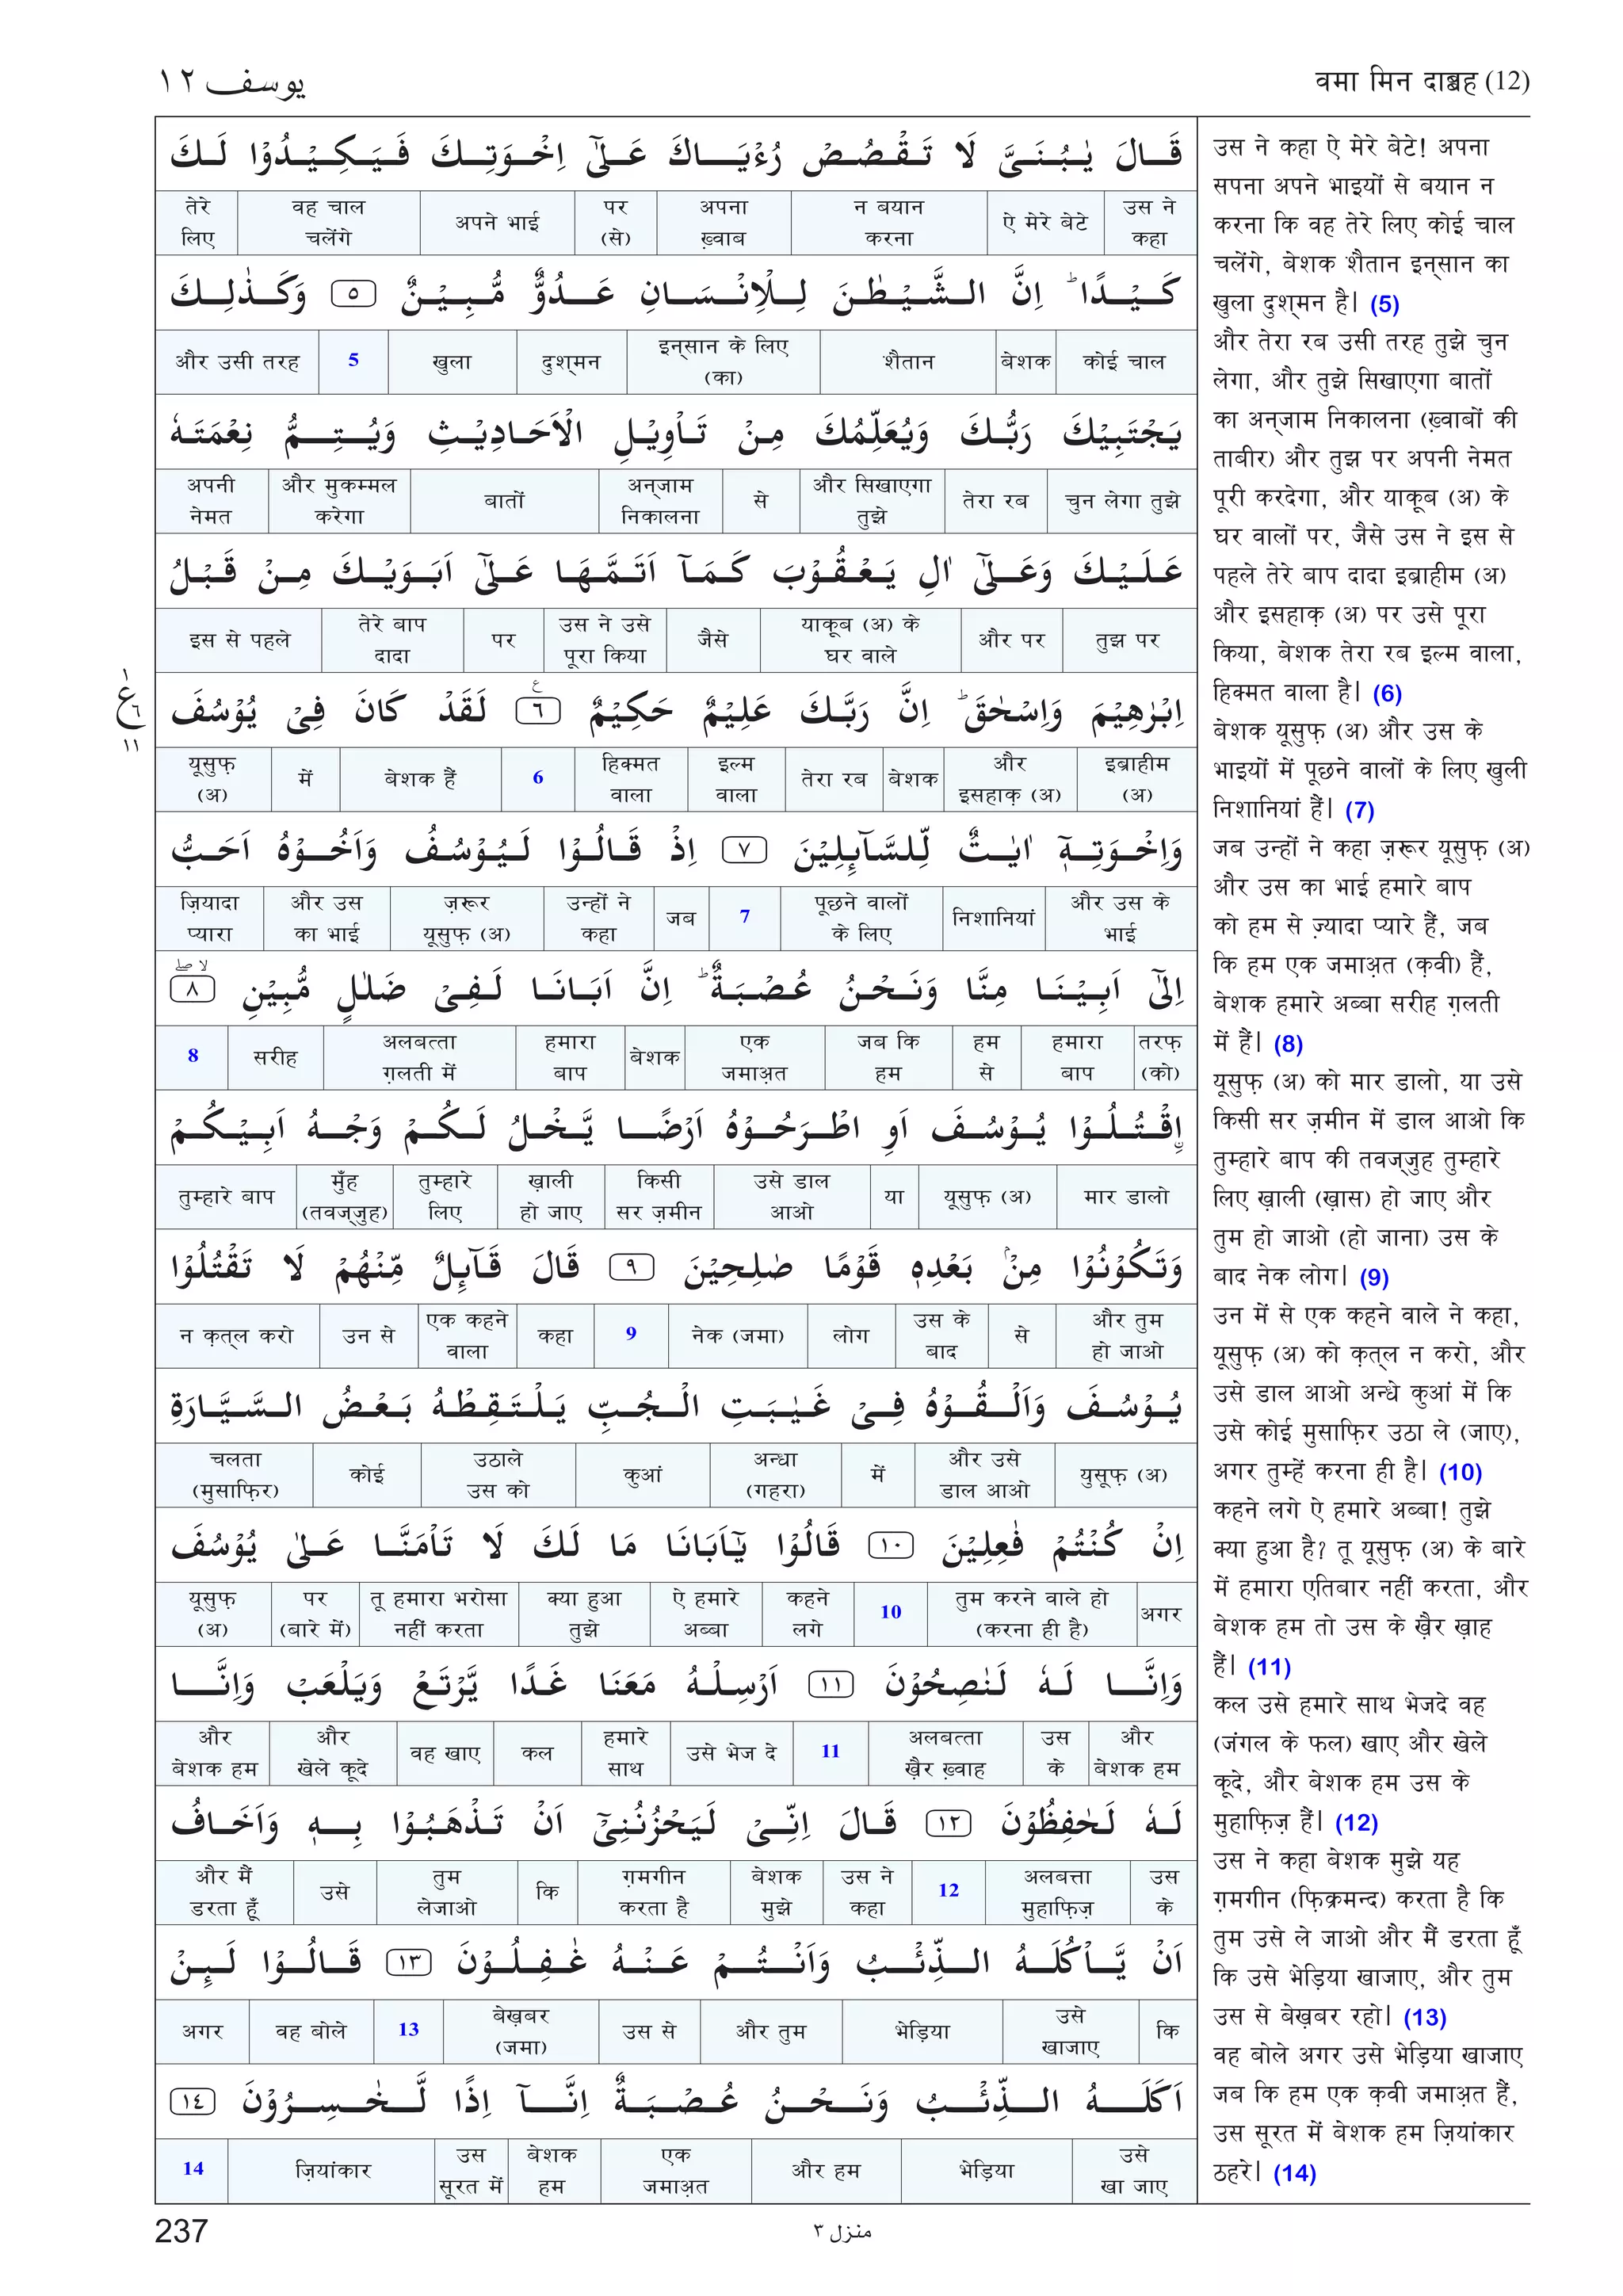 يوسف ١٢
वमा मिन दाब्बह (12)
قَالَ يٰبُنَيَّ لَا تَقْصُصْ رُءْيَاكَ عَلٰٓى اِخْوَتِكَ فَيَكِيْدُوْا لَكَ
उस ने कहा | ऐ मेरे बेटे | न बयान करना | अपना ख़्वाब | पर (से) | अपने भाई | वह चाल चलेंगे | तेरे लिए
كَيْدًا ؕ اِنَّ الشَّيْطٰنَ لِلْاِنْسَانِ عَدُوٌّ مُّبِيْنٌ ٥ وَكَذٰلِكَ
कोई चाल | बेशक | शैतान | इन्सान के लिए (का) | दुश्मन | खुला | 5 | और उसी तरह
يَجْتَبِيْكَ رَبُّكَ وَيُعَلِّمُكَ مِنْ تَاْوِيْلِ الْاَحَادِيْثِ وَيُتِمُّ نِعْمَتَهٗ
चुन लेगा तुझे | तेरा रब | और सिखाएगा तुझे | से | अन्जाम निकालना | बातों | और मुकम्मल करेगा | अपनी नेमत
عَلَيْكَ وَعَلٰٓى اٰلِ يَعْقُوْبَ كَمَآ اَتَمَّهَا عَلٰٓى اَبَوَيْكَ مِنْ قَبْلُ
तुझ पर | और पर | याकूब (अ) के घर वाले | जैसे | उस ने उसे पूरा किया | पर | तेरे बाप दादा | इस से पहले
اِبْرٰهِيْمَ وَاِسْحٰقَ ؕ اِنَّ رَبَّكَ عَلِيْمٌ حَكِيْمٌ ٦ لَقَدْ كَانَ فِيْ يُوْسُفَ
इब्राहीम (अ) | और इसहाक़ (अ) | बेशक | तेरा रब | इल्म वाला | हिक्मत वाला | 6 | बेशक हैं | में | यूसुफ़ (अ)
وَاِخْوَتِهٖٓ اٰيٰتٌ لِّلسَّآئِلِيْنَ ٧ اِذْ قَالُوْا لَيُوْسُفُ وَاَخُوْهُ اَحَبُّ
और उस के भाई | निशानियां | पूछने वालों के लिए | 7 | जब | उन्हों ने कहा | ज़रूर यूसुफ़ (अ) | और उस का भाई | ज़ियादा प्यारा
اِلٰٓى اَبِيْنَا مِنَّا وَنَحْنُ عُصْبَةٌ ؕ اِنَّ اَبَانَا لَفِيْ ضَلٰلٍ مُّبِيْنِ ٨
तरफ़ (को) | हमारा बाप | हम से | जब कि हम | एक जमाअ़त | बेशक | हमारा बाप | अलबत्ता ग़लती में | सरीह | 8
اِقْتُلُوْا يُوْسُفَ اَوِ اطْرَحُوْهُ اَرْضًا يَّخْلُ لَكُمْ وَجْهُ اَبِيْكُمْ
मार डालो | यूसुफ़ (अ) | या | उसे डाल आओ | किसी सर ज़मीन | ख़ाली हो जाए | तुम्हारे लिए | मुँह (तवज्जुह) | तुम्हारे बाप
وَتَكُوْنُوْا مِنْۢ بَعْدِهٖ قَوْمًا صٰلِحِيْنَ ٩ قَالَ قَآئِلٌ مِّنْهُمْ لَا تَقْتُلُوْا
और तुम हो जाओ | से | उस के बाद | लोग | नेक (जमा) | 9 | कहा | एक कहने वाला | उन से | न क़त्ल करो
يُوْسُفَ وَاَلْقُوْهُ فِيْ غَيٰبَتِ الْجُبِّ يَلْتَقِطْهُ بَعْضُ السَّيَّارَةِ
युसूफ़ (अ) | और उसे डाल आओ | में | अन्धा (गहरा) | कुआं | उठाले उस को | कोई | चलता (मुसाफ़िर)
اِنْ كُنْتُمْ فٰعِلِيْنَ ١٠ قَالُوْا يٰٓاَبَانَا مَا لَكَ لَا تَاْمَنَّا عَلٰى يُوْسُفَ
अगर | तुम करने वाले हो (करना ही है) | 10 | कहने लगे | ऐ हमारे अब्बा | क्या हुआ तुझे | तू हमारा भरोसा नहीं करता | पर (बारे में) | यूसुफ़ (अ)
وَاِنَّا لَهٗ لَنٰصِحُوْنَ ١١ اَرْسِلْهُ مَعَنَا غَدًا يَّرْتَعْ وَيَلْعَبْ وَاِنَّا
और बेशक हम | उस के | अलबत्ता ख़ैर ख़्वाह | 11 | उसे भेज दे | हमारे साथ | कल | वह खाए | और खेले कूदे | और बेशक हम
لَهٗ لَحٰفِظُوْنَ ١٢ قَالَ اِنِّيْ لَيَحْزُنُنِيْٓ اَنْ تَذْهَبُوْا بِهٖ وَاَخَافُ
उस के | अलबत्ता मुहाफ़िज़ | 12 | उस ने कहा | बेशक मुझे | ग़मगीन करता है | कि | तुम लेजाओ | उसे | और मैं डरता हूँ
اَنْ يَّاْكُلَهُ الذِّئْبُ وَاَنْتُمْ عَنْهُ غٰفِلُوْنَ ١٣ قَالُوْا لَئِنْ
कि | उसे खाजाए | भेड़िया | और तुम | उस से | बेख़बर (जमा) | 13 | वह बोले | अगर
اَكَلَهُ الذِّئْبُ وَنَحْنُ عُصْبَةٌ اِنَّآ اِذًا لَّخٰسِرُوْنَ ١٤
उसे खा जाए | भेड़िया | और हम | एक जमाअ़त | बेशक हम | उस सूरत में | ज़ियांकार | 14
ع
٦
١١
उस ने कहा ऐ मेरे बेटे! अपना
सपना अपने भाइयों से बयान न
करना कि वह तेरे लिए कोई चाल
चलेंगे, बेशक शैतान इन्सान का
खुला दुश्मन है। (5)
और तेरा रब उसी तरह तुझे चुन
लेगा, और तुझे सिखाएगा बातों
का अन्जाम निकालना (ख़्वाबों की
ताबीर) और तुझ पर अपनी नेमत
पूरी करदेगा, और याकूब (अ) के
घर वालों पर, जैसे उस ने इस से
पहले तेरे बाप दादा इब्राहीम (अ)
और इसहाक़ (अ) पर उसे पूरा
किया, बेशक तेरा रब इल्म वाला,
हिक्मत वाला है। (6)
बेशक यूसुफ़ (अ) और उस के
भाइयों में पूछने वालों के लिए खुली
निशानियां हैं। (7)
जब उन्हों ने कहा ज़रूर यूसुफ़ (अ)
और उस का भाई हमारे बाप
को हम से ज़्यादा प्यारे हैं, जब
कि हम एक जमाअ़त (क़वी) हैं,
बेशक हमारे अब्बा सरीह ग़लती
में हैं। (8)
यूसुफ़ (अ) को मार डालो, या उसे
किसी सर ज़मीन में डाल आओ कि
तुम्हारे बाप की तवज्जुह तुम्हारे
लिए ख़ाली (ख़ास) हो जाए और
तुम हो जाओ (हो जाना) उस के
बाद नेक लोग। (9)
उन में से एक कहने वाले ने कहा,
यूसुफ़ (अ) को क़त्ल न करो, और
उसे डाल आओ अन्धे कुआं में कि
उसे कोई मुसाफ़िर उठा ले (जाए),
अगर तुम्हें करना ही है। (10)
कहने लगे ऐ हमारे अब्बा! तुझे
क्या हुआ है? तू यूसुफ़ (अ) के बारे
में हमारा एतिबार नहीं करता, और
बेशक हम तो उस के ख़ैर ख़ाह
हैं। (11)
कल उसे हमारे साथ भेजदे वह
(जंगल के फल) खाए और खेले
कूदे, और बेशक हम उस के
मुहाफ़िज़ हैं। (12)
उस ने कहा बेशक मुझे यह
ग़मगीन (फ़िक्रमन्द) करता है कि
तुम उसे ले जाओ और मैं डरता हूँ
कि उसे भेड़िया खाजाए, और तुम
उस से बेख़बर रहो। (13)
वह बोले अगर उसे भेड़िया खाजाए
जब कि हम एक क़वी जमाअ़त हैं,
उस सूरत में बेशक हम ज़ियांकार
ठहरे। (14)
237
منزل ٣